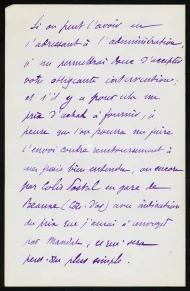 Si on peut l'avoir en
s'adressant à l'administration,
me permettrai donc d'accepter
votre obligeante intervention;
et s'il y a pour cela un
prix d'achat à fournir, je
pense que l'on pourra me faire
l'envoi contre remboursement à
mes frais bien entendu, ou encore
par Colis Postal en gare de
Beaune (Côte d'Or) avec indication
du prix que j'aurai à envoyer
par Mandat, ce qui sera
peut-être plus simple.